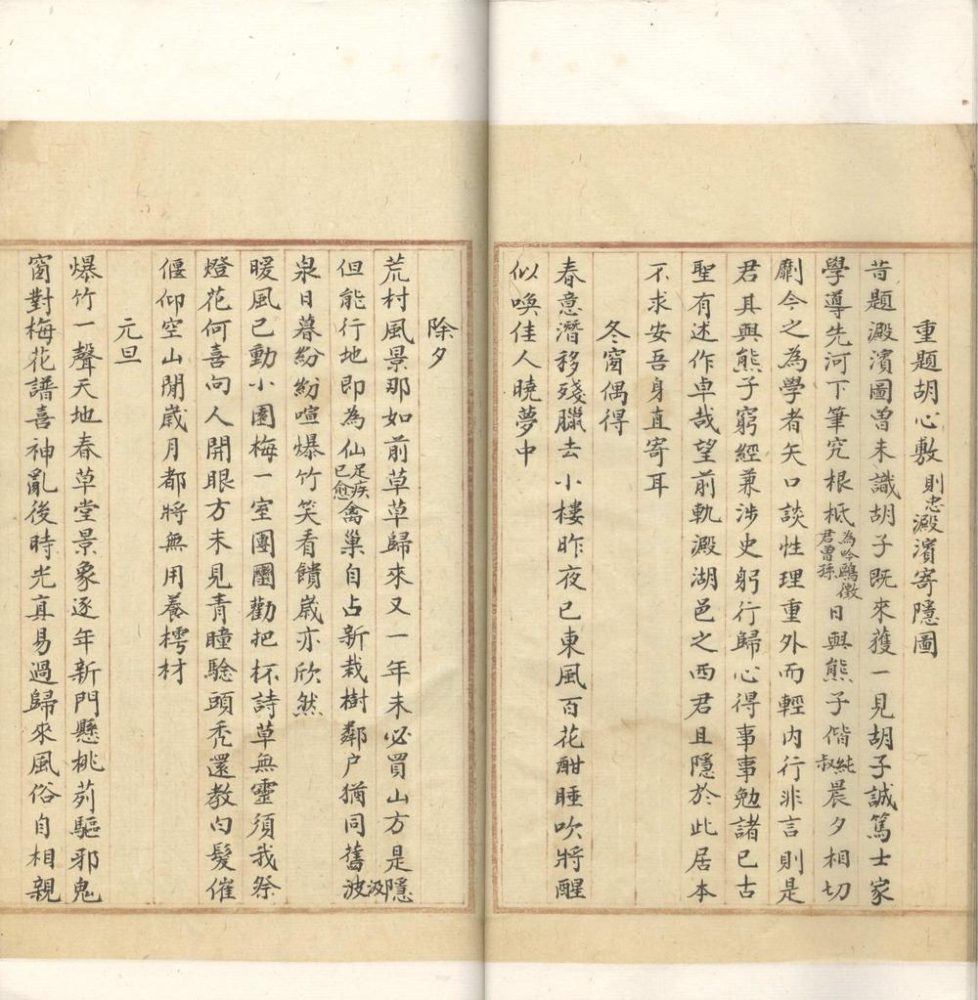 重題胡心敷則忠澱濱寄隱圖
昔題澱濱圖曾未識胡子既來獲一見胡子誠篤士家
學導先河下筆究根柢為吟鷗徵君曾孫日與熊子偕純叔晨夕相切
劘今之為學者矢口談性理重外而輕內行非言則是
君其與熊子窮經兼涉史躬行歸心得事事勉諸己古
聖有述作卓哉望前軌澱湖邑之西君且隱於此居本
不求安吾身直寄耳
冬窗偶得
春意潛移殘臘去小樓昨夜已東風百花酣睡吹將醒
似喚佳人曉夢中
除夕
荒村風景那如前草草歸來又一年未必買山方是隱
但能行地即為仙足疾已愈禽巢自占新栽樹鄰户猶同舊汲
泉日暮紛紛喧爆竹笑看饋歲亦欣然
暖風已動小園梅一室團圞勸把杯詩草無靈須我祭
燈花何喜向人開眼方未見青瞳騐頭秃還教白髮催
偃仰空山閒歲月都將無用養樗材
元旦
爆竹一聲天地春草堂景象逐年新門懸桃茢驅邪鬼
窗對梅花譜喜神亂後時光真易過歸來風俗自相親